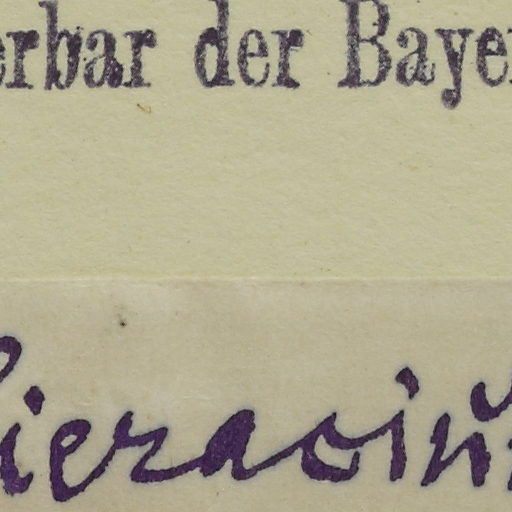 erbar der Baye
Hieraciu